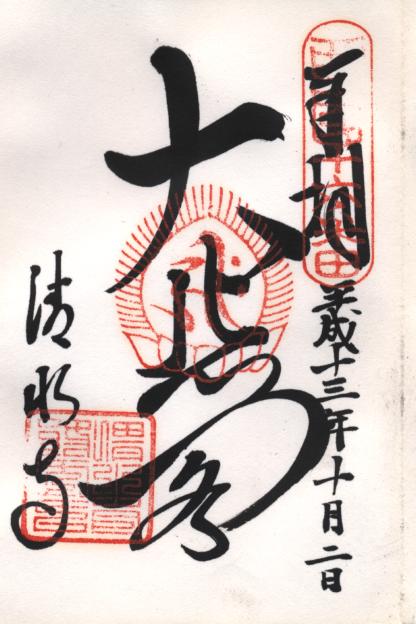 奉拝
平成十三年十月二日
大悲閣
清水寺